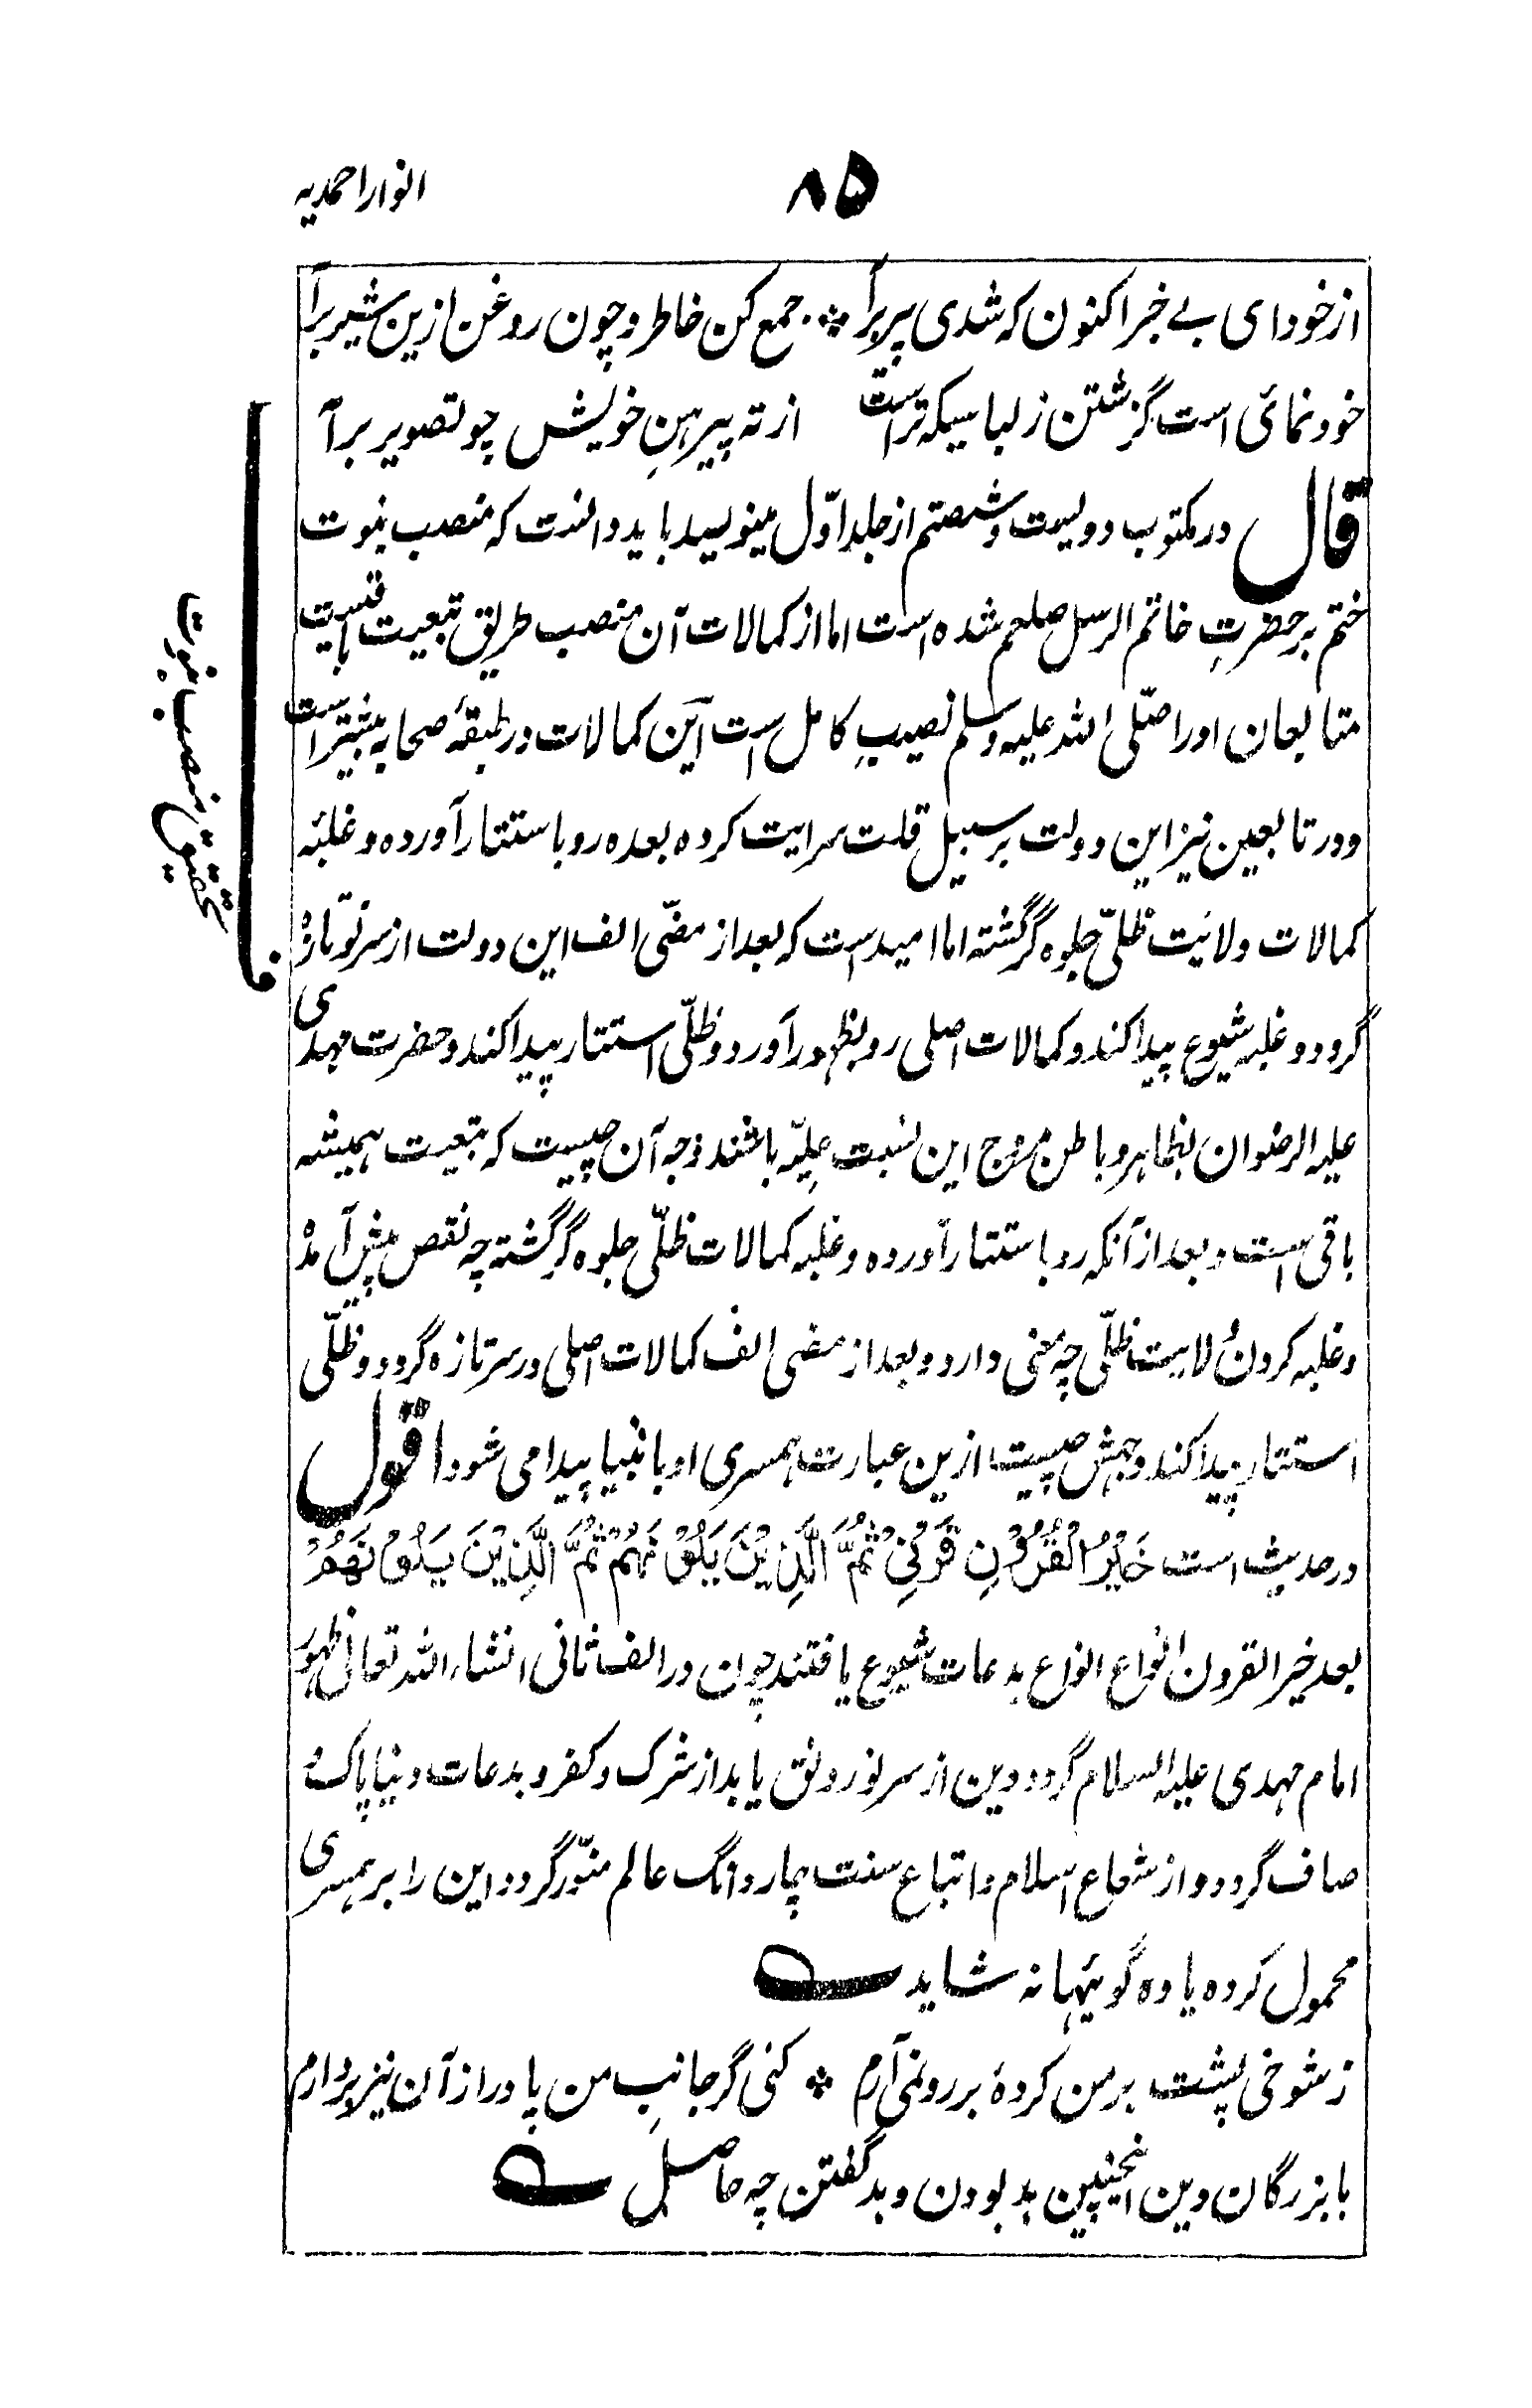 انوار احمدیہ
۸۵
از خود ای بے خبر اکنون که شدی پیر برآ ؞ جمع کن خاطر و چون روغن ازین شیر برآ
خود نمائی است گزشتن ز لباسیکه تراست از ته پیرہنِ خویش چو تصویر برآ
قال در مکتوب دویست و شصتم از جلد اوّل مینویسد باید دانست که منصب نبوت
ختم بر حضرتِ خاتم الرسل صلعم شده است اما از کمالات آن منصب طریق تبعیت
متابعان او را صلّی الله علیه وسلم نصیبِ کامل است این کمالات در طبقۂ صحابه بیشتر است
و در تابعین نیز این دولت بر سبیل قلت سرایت کرده بعده رو باستتار آورده و غلبۂ
کمالات ولایت ظلّی جلوه گر گشته اما امید است که بعد از مضّی الف این دولت از سر نو تازه
گردد و غلبه شیوع پیدا کند و کمالات اصلی رو بظہور آورد و ظلّی استتار پیدا کند و حضرت مہدی
علیه الرضوان بظاہر و باطن مروّج این نسبت علیّه باشند وجه آن چیست که تبعیت ہمیشه
باقی است و بعد از آنکه رو باستتار آورده و غلبه کمالات ظلّی جلوه گر گشته چه نقص پیش آمد
و غلبه کردن ولایت ظلّی چه معنی دارد و بعد از مضی الف کمالات اصلی در سر تازه گردد و ظلّی
استتار پیدا کند وجہش چیست ازین عبارت ہمسری او با انبیا پیدا می شود اقول
در حدیث است خَیْرُ الْقُرُوْنِ قَرْنِیْ ثُمَّ الَّذِیْنَ یَلُوْنَہُمْ ثُمَّ الَّذِیْنَ یَلُوْنَہُمْ
بعد خیر القرون انواع انواع بدعات شیوع یافتند چون در الف ثانی انشاء الله تعالی ظہور
امام مہدی علیه السلام گردد و دین از سر نو رونق یابد از شرک و کفر و بدعات دنیا پاک و
صاف گردد و از شعاع اسلام و اتباع سنت چار دانگ عالم منوّر گردد این را بر ہمسری
محمول کرده یاوه گوئیہا نه شاید ؎
ز شوخی پشت بر من کردۂ بر رو نمی آرم ؞ کنی گر جانبِ من پا دراز آن نیز بردارم
با بزرگان دین اینچنین بد بودن و بد گفتن چه حاصل ؎
تحقیق منصب نبوت
ف